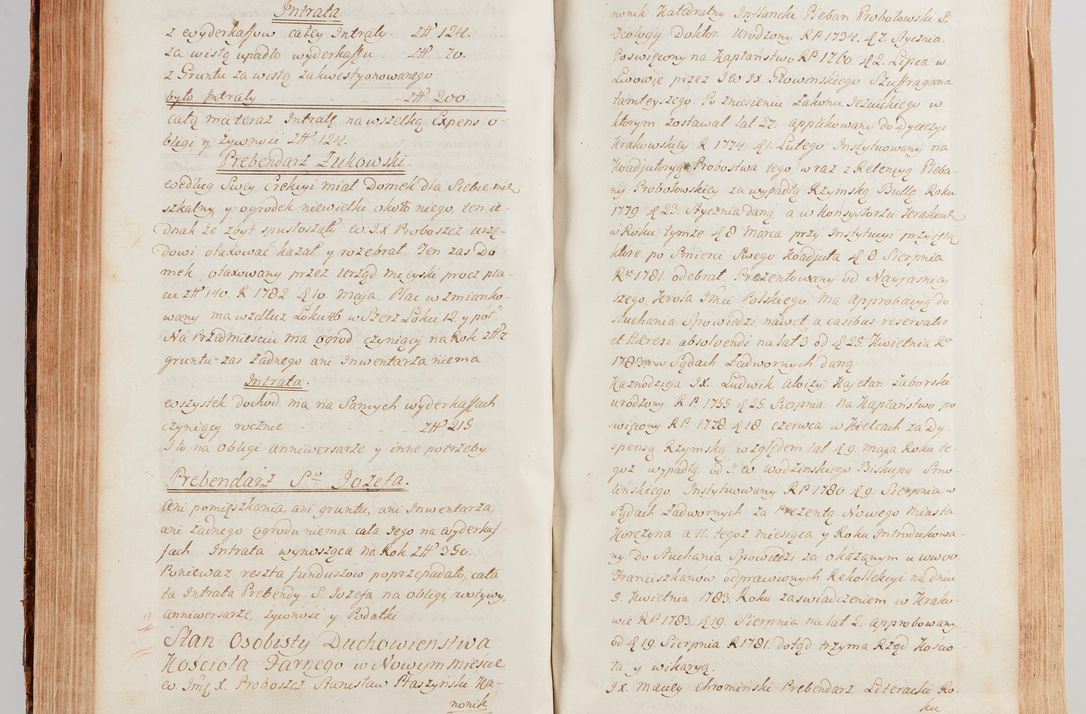 Intrata.
z wyderkaffow całey Intraty Złł 124.
za wistą upadło wyderkaffu Złł 70.
z Gruntu za wistą zakwestyonowanego
było Intraty Złł 200.
całą ma teraz Intratę na wszelką Expens o-
bligi y żywność Złł 124.
Prebendarz Zukowski.
według Swey Erekcyi miał Domek dla Siebie mie-
szkalny y ogrodek niewielki około niego, ten ie-
dnak że zbyt spustoszały JX Proboszcz urzę-
dowi otaxować kazał y rozebrał. Ten zas Do-
mek otaxowany przez Urząd mieyski procz pla-
cu Złł 140. R 1782. d 10. Maja. Plac wzmianko-
wany ma wzdłuz Łokci 46 wSzerz Łokci 12 y poł
Na Przedmiesciu ma ogrod czyniący na Rok Złł 2
gruntu zas żadnego ani Inwentarza niema
Intrata.
wszystek dochod ma na Samych wyderkaffach
czyniący rocznie Złł 215
I to na Obligi anniwersarze y inne potrzeby.
Prebendarz S. Jozefa.
Ani pomięszkania, ani gruntu, ani Inwentarza,
ani żadnego ogrodu niema cała Jego na wyderkaf-
fach Intrata wynosząca na Rok Złł 350.
Poniewaz reszta funduszow poprzepadało, cała
ta Intrata Prebendy S. Jozefa na obligi wotywy,
anniwersarze, żywność y Podatki
Stan Osobisty Duchowieństwa
Kościoła Farnego w Nowym miescie
Jmć X. Proboszcz Stanisław Ptaszyński Ka-
nonik
nonik Katedralny Inflancki, Pleban Probołowski S.
Teologij Doktor. Urodzony R.P. 1734. d 7. Stycznia.
Poswięcony na Kapłaństwo R.P. 1760. d 2. Lipca w
Lwowie przez JW JX. Głowenskiego Szuffragana
tamteyszego. Po zniesieniu Zakonu Jezuickiego w
ktorym zostawał lat 27. applikowany do Dyecezyi
Krakowskiey R. 1774. d 1. Lutego Instytuowany na
Koadjutoryą Probostwa tego wraz z Retencyą Pleba-
nij Probołowskiey za wypadłą Rzymską Bullą Roku
1779. d 23. Stycznia daną, a w Konsystorzu Krakow:
w Roku tymże d 8 Marca przy Instytucyi przyjętą
ktore po Smierci Swego Koadjuta d 8 Sierpnia
R. 1781 odebrał. Prezentowany od Nayjasniey
szego Krola Jmci Polskiego Ma approbacyą do
słuchania Spowiedzi nawet a casibus reservatis
et Hæresi absolvendi na lat 3 od d 29. Kwietnia R.
1783 w Sądach Zadwornych daną
Kaznodzieja JX. Ludwik Aloizy Kajetan Zaborski
urodzony R.P. 1755 d 25. Sierpnia. Na Kapłaństwo po
święcony R.P. 1778 d 18 czerwca w Kielcach za Dy
spensą Rzymską względem lat d 9. maja Roku te-
goz wypadłą od JW Wodzinskiego Biskupa Smo-
lenskiego. Instytuowany R.P. 1780. d 9. Sierpnia w
Sądach Zadwornych za Prezentą Nowego Miasta
Korczyna a 11. tegoz miesiąca y Roku Introdukowa-
ny. Do Słuchania Spowiedzi za okazanym u WWOO
Franciszkanow odprawionych Rekollekcyi na dniu
5. Kwietnia 1783. Roku zaswiadczeniem w Krako-
wie R.P. 1783. d 19. Sierpnia na lat 2. approbowany
od d 19. Sierpnia R 1781. dotąd trzyma Rząd Koscio-
ła y wikaryą.
JX. Maciey Chrominski Prebendarz Literacki Ro-
ku